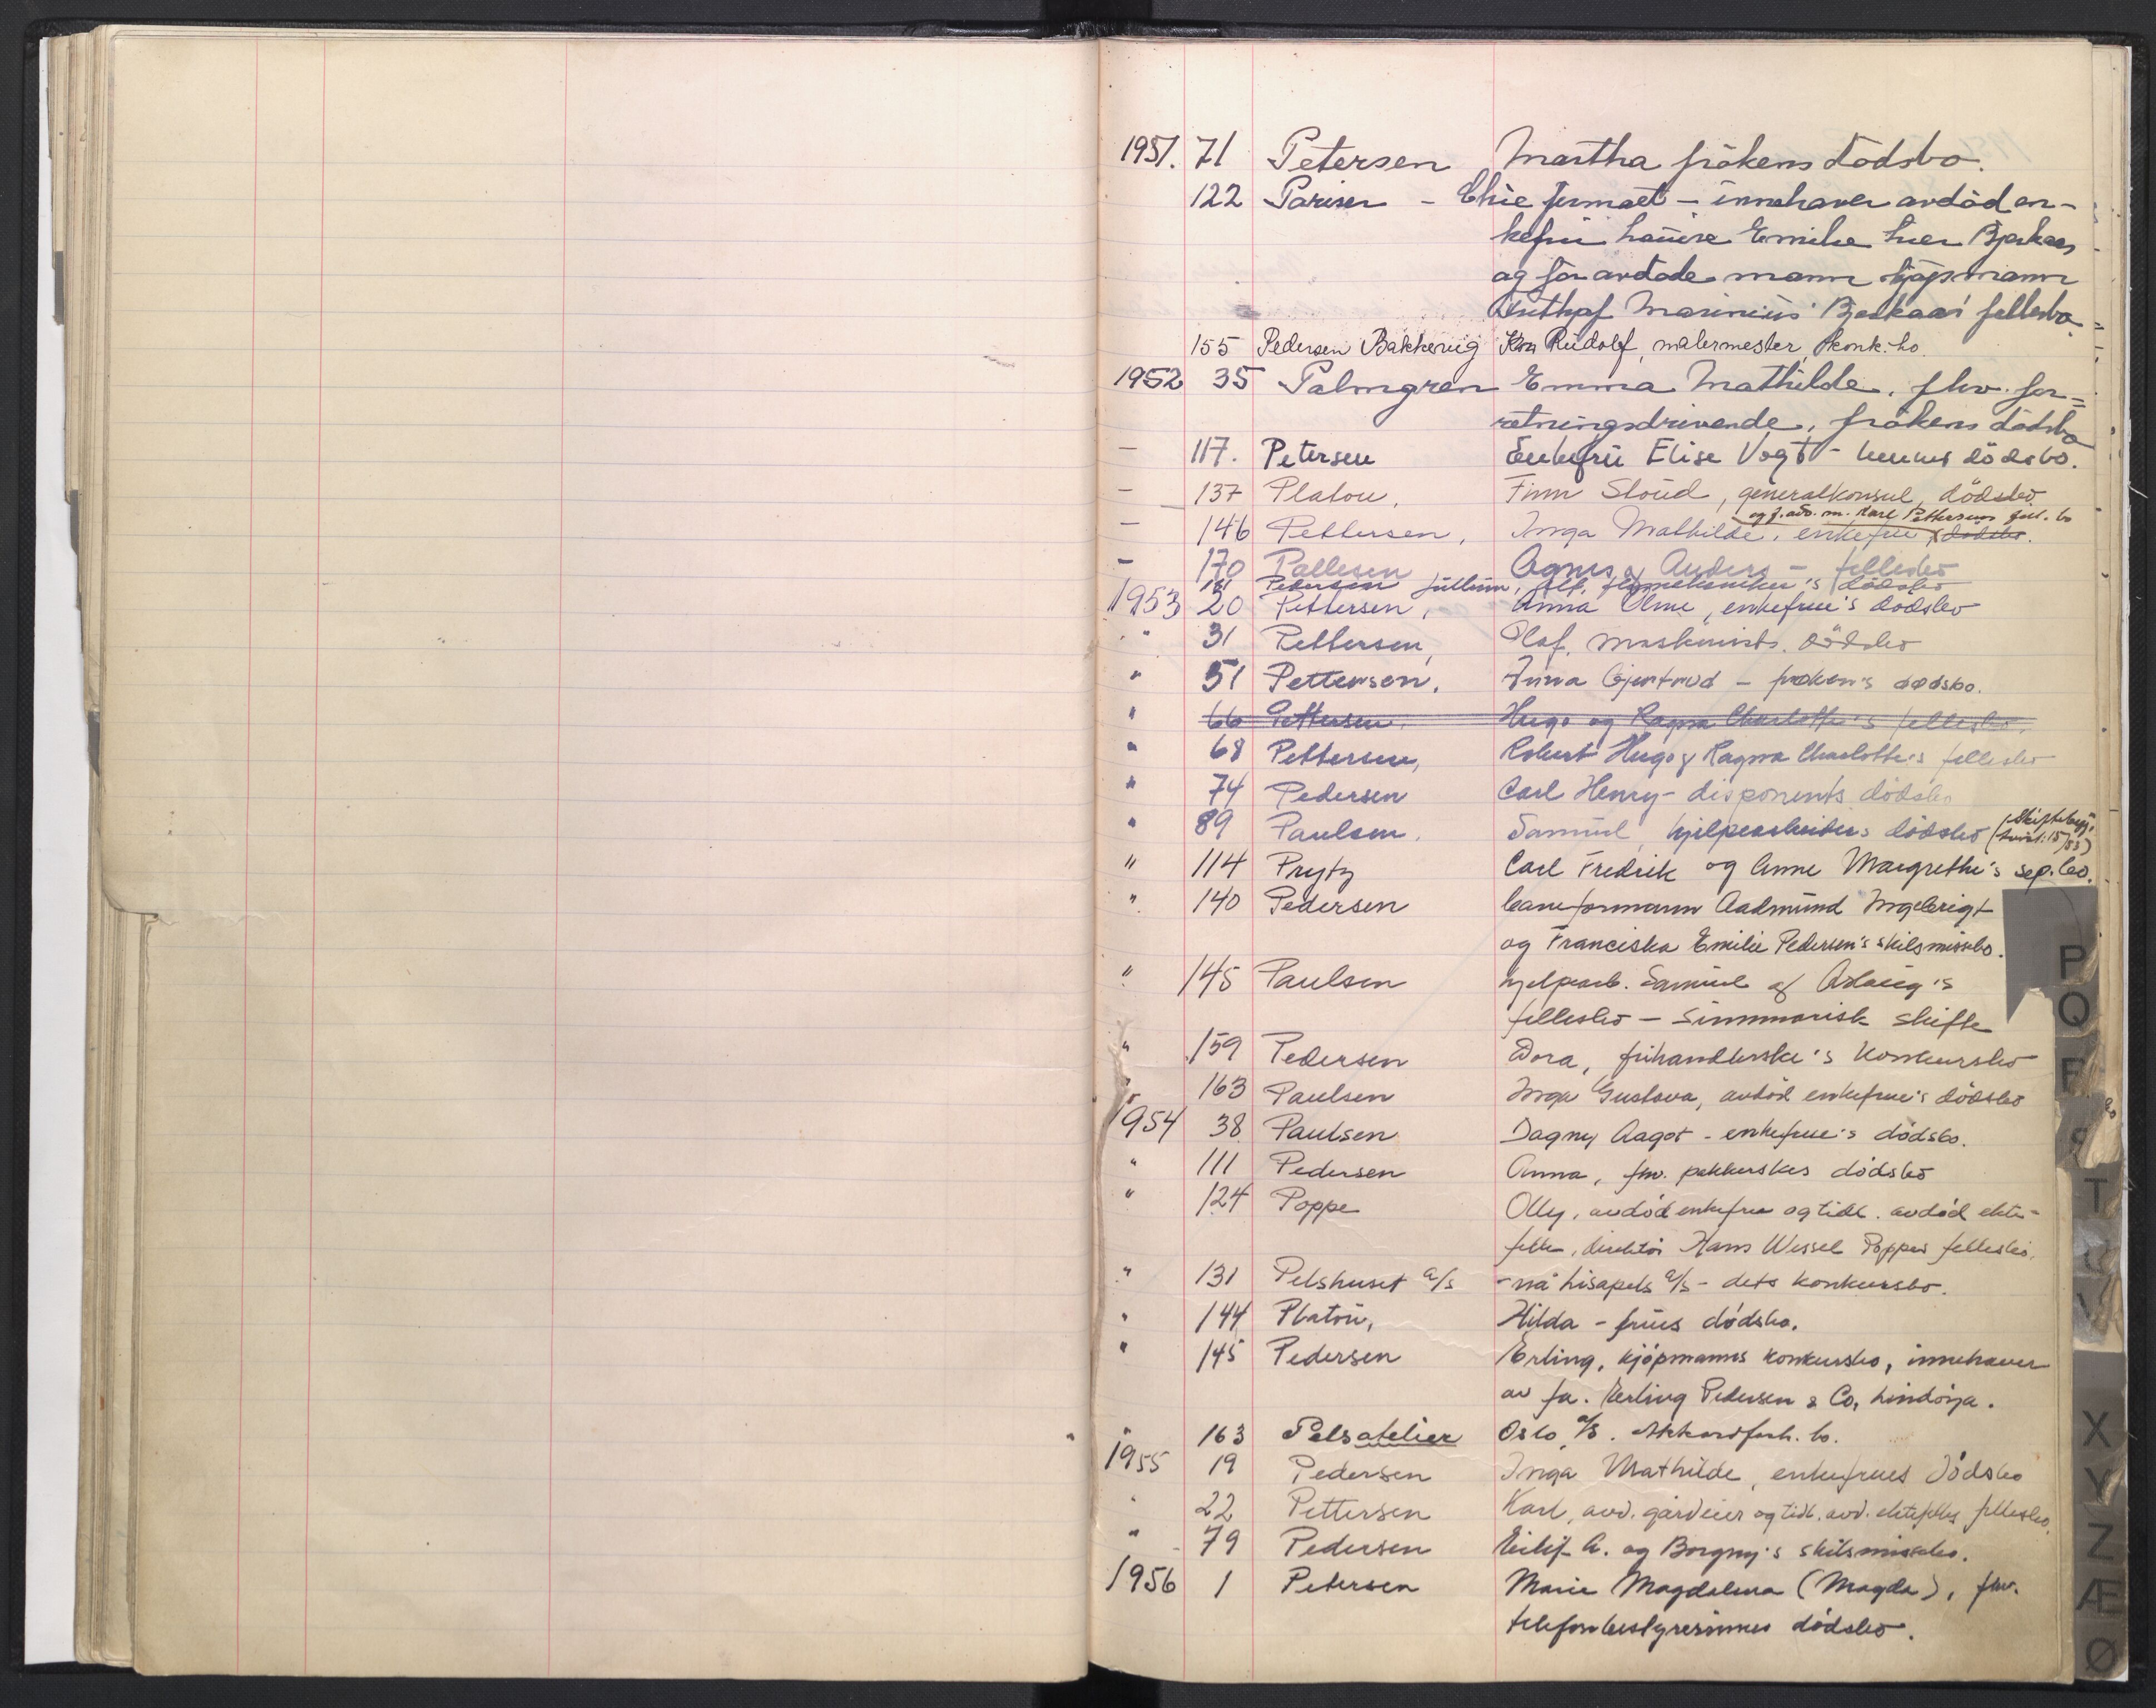 1951. 71 Petersen Martha frökens dödsbo.
122 Pariser - Chic firmaet - innehaver avdöd en-
kefru Emilie Bjerkaas
og før avdöde mann kjøpmann
Marinius Bjerkaas' fellesbo.
155 Pedersen Bakkerüg Rüdolf, malermester, konk.bo.
1952 35 Palmgren Emma Mathilde, fhv. for=
retningsdrivende, frökens dödsbo
— 117. Petersen Enkefrü Elise Vogt - hennes dödsbo.
— 137 Platou, Finn Stoud, generalkonsul, dödsbo
og f. avd. m. Karl Pettersens fell. bo
— 146 Pettersen, Inga Mathilde, enkefrue dödsbo.
— 170 Pallesen Agnes og Anders - fellesbo
181 Pedersen Jüllüm, flymekaniker's dödsbo
1953 20 Pettersen, Anna Oline, enkefrue's dödsbo
" 31 Pettersen, Olaf, maskinists dödsbo
" 51 Pettersen, Anna Gjertrud - frøken's dødsbo.
" 66 Pettersen, Hugo og Ragna Charlotte's fellesbo.
" 68 Pettersen, Robert Hugo & Ragna Charlotte's fellesbo
" 74 Pedersen Carl Henry - disponents dödsbo
" 89 Paulsen. Samüel, hjelpearbeiders dödsbo (
15/53)
" 114 Prytz Carl Fredrik og Anne Margrethe's sep.bo.
" 140 Pedersen Aadmünd Ingebrigt
og Franciska Emilie Pedersen's skilsmissebo.
" 145 Paulsen hjelpearb. Samüel & Aslaüg's
fellesbo - Summarisk skifte
" 159 Pedersen Dora, frihandlerske's konkursbo
" 163 Paulsen Inga Gustava, avdöd enkefrue's dödsbo
1954 38 Paulsen Dagny Aagot - enkefrue's dödsbo.
" 111 Pedersen Anna, fhv. pakkerskes dödsbo
" 124 Poppe Olly, avdöd enkefrue og tidl. avdöd ekte-
felle, direktör Hans Wessel Poppes fellesbo.
" 131 Pelshuset A/S - nå Lisapels A/S - dets konkursbo.
" 144 Platoü, Hilda - früs dödsbo.
" 145 Pedersen Erling, kjöpmanns konkursbo, innehaver
av fa. Erling Pedersen & Co, Lindöya.
" 163 Pelsatelier Oslo, A/S. Akkordforh. bo.
1955 19 Pedersen Inga Mathilde, enkefrues dödsbo
" 22 Pettersen Karl, avd. gårdeier og tidl. avd. ektefelles fellesbo.
" 79 Pedersen Eilif A. og Borgny's skilsmissebo.
1956 1 Petersen Marie Magdalena (Magda), fhv.
telefonbestyrerinnes dödsbo.
P
Q
R
S
T
U
V
X
Y
Z
Æ
Ø